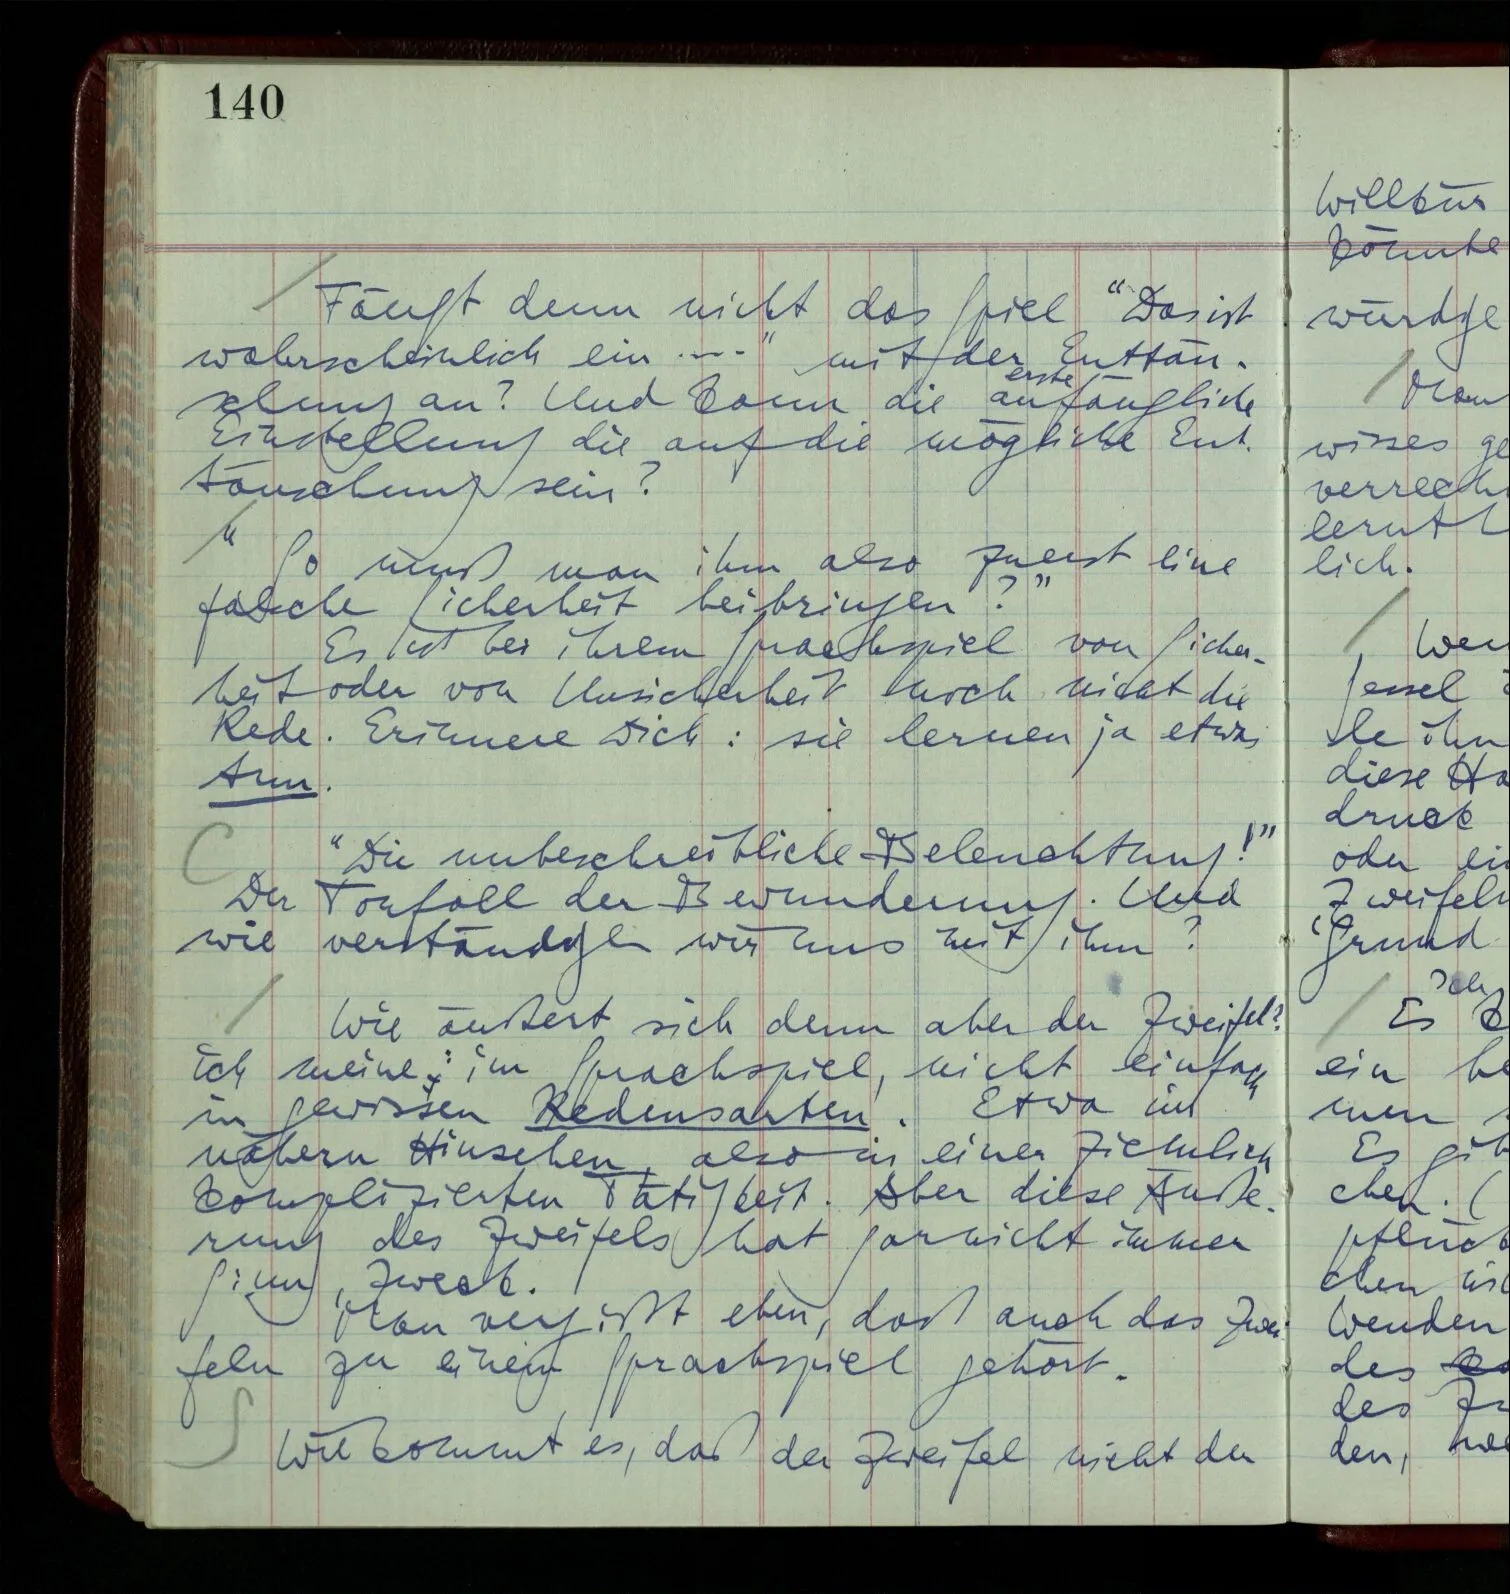 140
Fängt denn nicht das Spiel "Das ist
wahrscheinlich ein ...." mit der Enttäu-
schung an? Und kann die erste anfängliche
Einstellung die auf die mögliche Ent-
täuschung sein?
"So muß man ihm also zuerst eine
falsche Sicherheit beibringen?"
Es ist bei ihrem Sprachspiel von Sicher-
heit oder von Unsicherheit noch nicht die
Rede. Erinnere Dich: sie lernen ja etwas
tun.
"Die unbeschreibliche Beleuchtung!"
Der Tonfall der Bewunderung. Und
wie verständigen wir uns mit ihm?
Wie äußert sich denn aber der Zweifel?
ich meine: im Sprachspiel, nicht einfach
in gewissen Redensarten. Etwa im
nähern Hinsehen, also in einer ziemlich
komplizierten Tätigkeit. Aber diese Äuße-
rung des Zweifels hat garnicht immer
Sinn, Zweck.
Man vergißt eben, daß auch das Zwei-
feln zu einem Sprachspiel gehört.
Wie kommt es, daß der Zweifel nicht der
Willkür
könnte
würdge
Man
wisses ge
verrech
lernt
lich.
Wen
Sessel
le ihn
diese Ha
druck
oder ei
Zweifeln
Grund
Es
ein be
men
Es gib
chen. (
pflück
chen
Wenden
des
des
den,